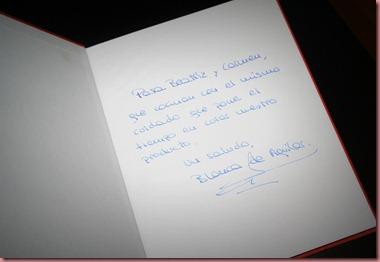 Para Beatriz y Carmen,
que cocinan con el mismo
cuidado que pone el
tiempo en curar nuestro
producto.
Un saludo,
Blanca de Aguilar.